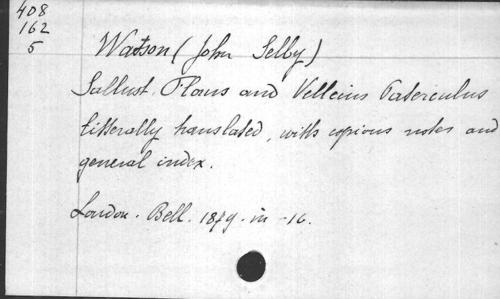 408
162
5
Watson (John Selby)
Sallust, Florus and Velleius Paterculus
litterally translated, with copious notes and
general index.
London. Bell. 1879. in-16.